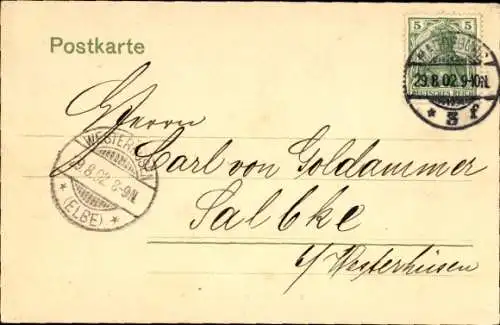 Postkarte
5 5
MAGDEBURG
29.8.02.9-10N.
DEUTSCHES REICH
* 5 f
Herrn
WESTERHÜSEN
9.8.02 8-9N.
* (ELBE) *
Carl von Goldammer
Salbke
b/Westerhüsen